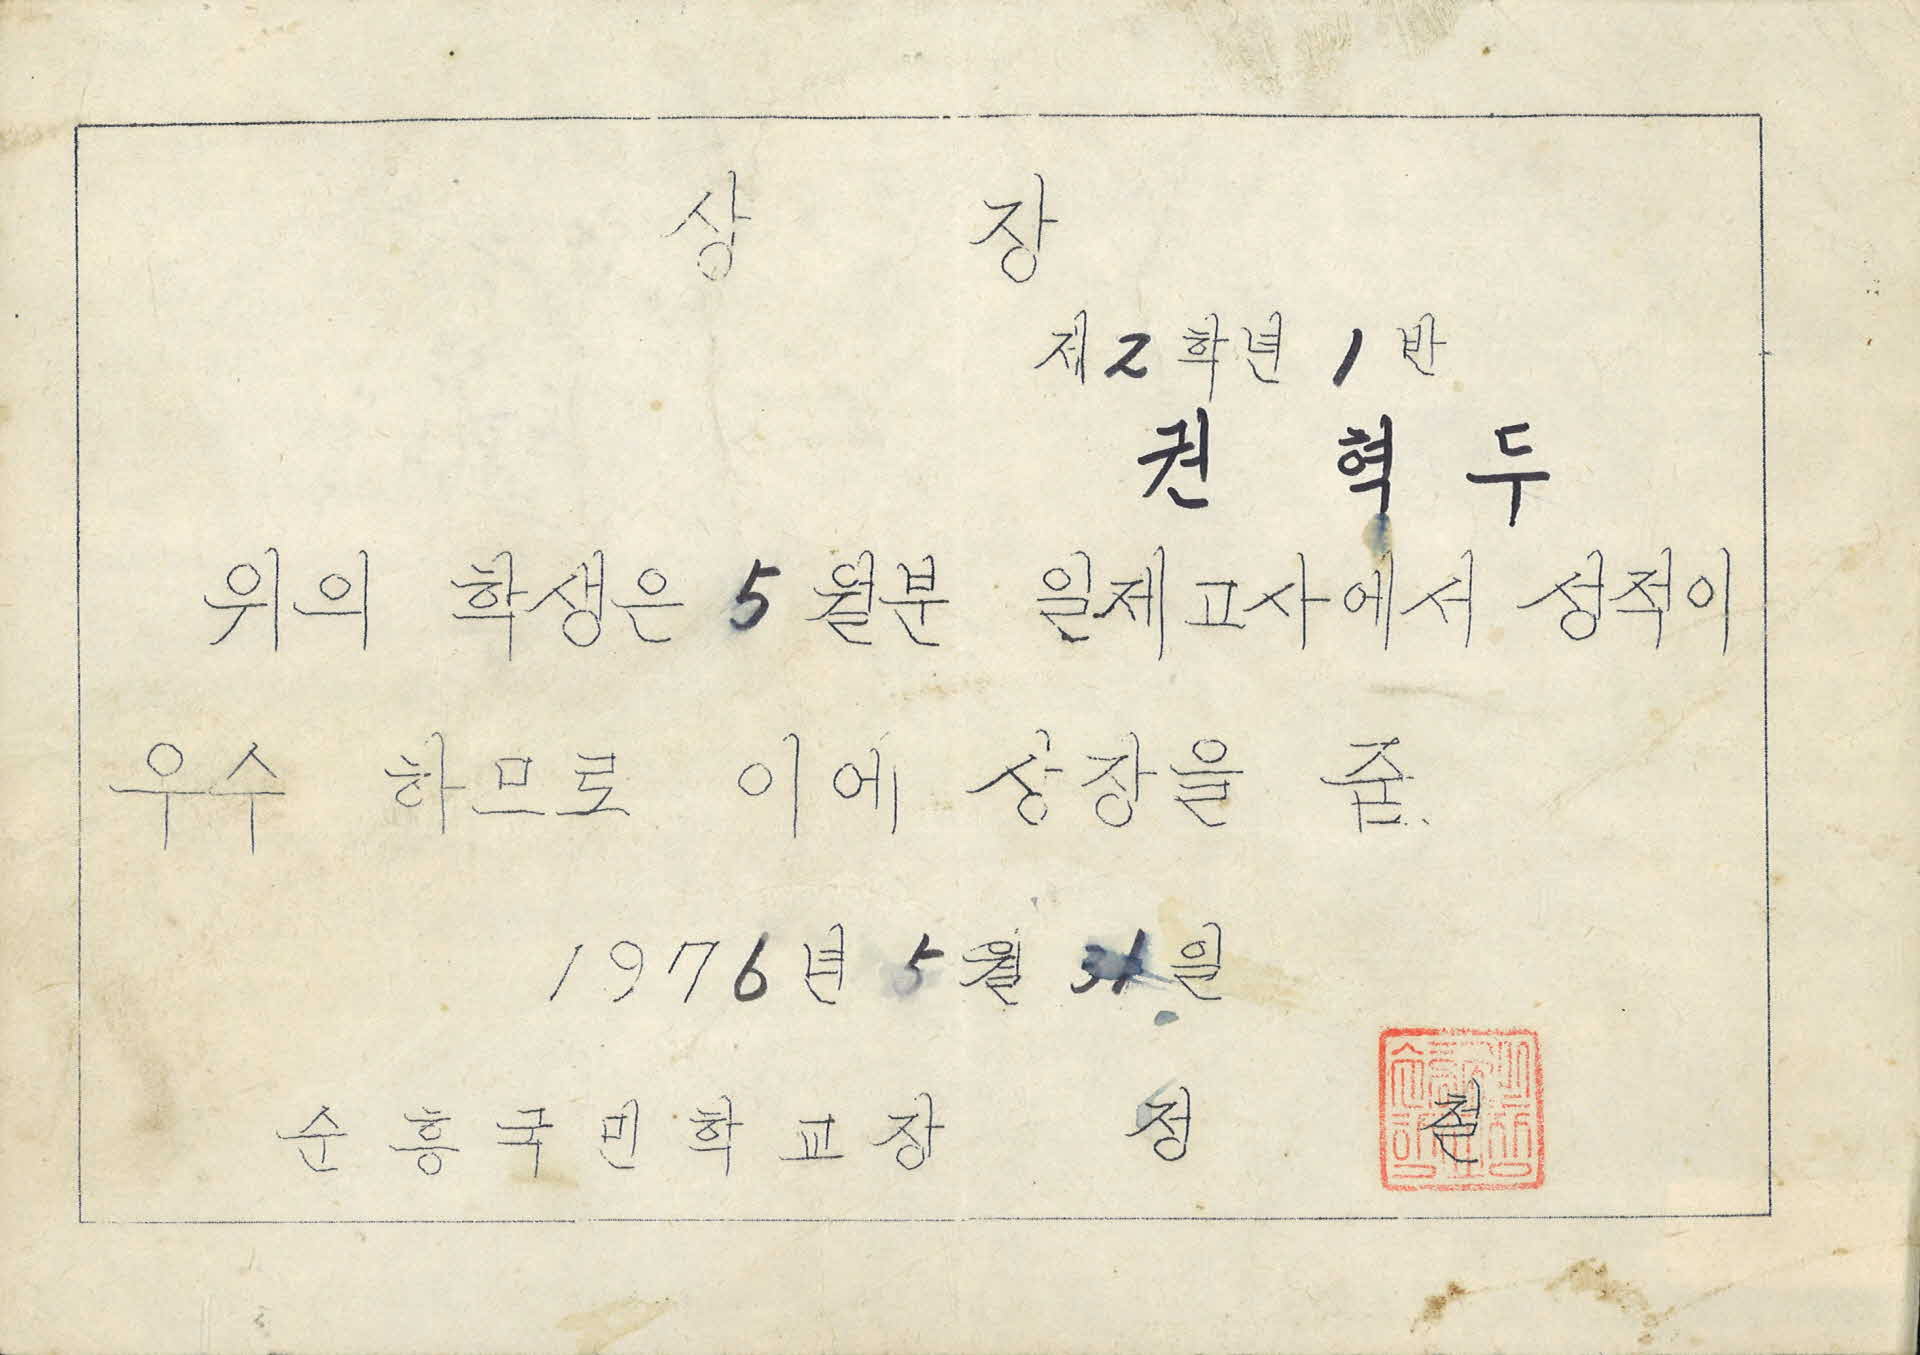 상 장
제2학년 1반
권 혁 두
위의 학생은 5월분 일제고사에서 성적이
우수 하므로 이에 상장을 줌.
1976년 5월 31일
순흥국민학교장 정